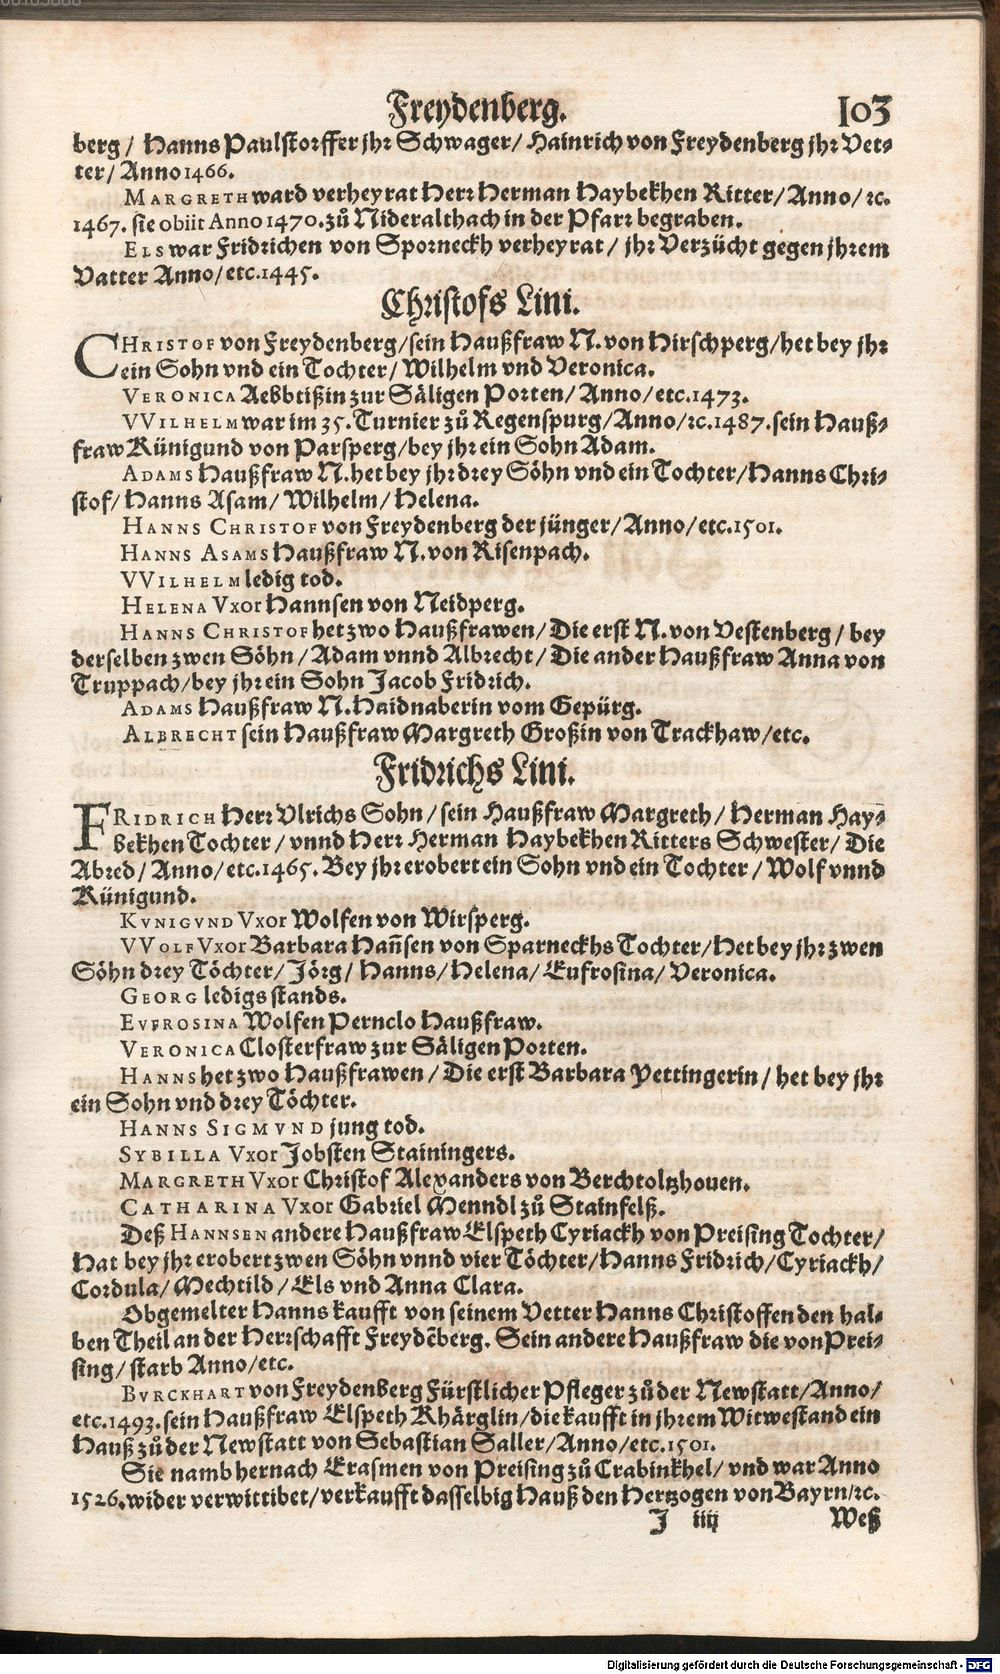 Freydenberg. 103
berg / Hanns Paulstorffer jhr Schwager / Hainrich von Freydenberg jhr Vet-
ter / Anno 1466.
MARGRETH ward verheyrat Herr Herman Haybekhen Ritter / Anno / ꝛc.
1467. sie obiit Anno 1470. zů Nideralthach in der Pfarr begraben.
ELS war Fridrichen von Sporneckh verheyrat / jhr Verzücht gegen jhrem
Vatter Anno / etc. 1445.
Christofs Lini.
CHRISTOF von Freydenberg / sein Haußfraw N. von Hirschperg / het bey jhr
ein Sohn vnd ein Tochter / Wilhelm vnd Veronica.
VERONICA Aebbtißin zur Säligen Porten / Anno / etc. 1473.
VVILHELM war im 35. Turnier zů Regenspurg / Anno / ꝛc. 1487. sein Hauß-
fraw Künigund von Parsperg / bey jhr ein Sohn Adam.
ADAMS Haußfraw N. het bey jhr drey Söhn vnd ein Tochter / Hanns Chri-
stof / Hanns Asam / Wilhelm / Helena.
HANNS CHRISTOF von Freydenberg der jünger / Anno / etc. 1501.
HANNS ASAMS Haußfraw N. von Risenpach.
VVILHELM ledig tod.
HELENA Vxor Hannsen von Neidperg.
HANNS CHRISTOF het zwo Haußfrawen / Die erst N. von Vestenberg / bey
derselben zwen Söhn / Adam vnnd Albrecht / Die ander Haußfraw Anna von
Truppach / bey jhr ein Sohn Jacob Fridrich.
ADAMS Haußfraw N. Haidnaberin vom Gepürg.
ALBRECHT sein Haußfraw Margreth Großin von Trackhaw / etc.
Fridrichs Lini.
FRIDRICH Herr Vlrichs Sohn / sein Haußfraw Margreth / Herman Hay-
bekhen Tochter / vnnd Herr Herman Haybekhen Ritters Schwester / Die
Abred / Anno / etc. 1465. Bey jhr erobert ein Sohn vnd ein Tochter / Wolf vnnd
Künigund.
KVNIGVND Vxor Wolfen von Wirsperg.
VVOLF Vxor Barbara Hañsen von Sparneckhs Tochter / Het bey jhr zwen
Söhn drey Töchter / Jörg / Hanns / Helena / Eufrosina / Veronica.
GEORG ledigs stands.
EVFROSINA Wolfen Pernclo Haußfraw.
VERONICA Closterfraw zur Säligen Porten.
HANNS het zwo Haußfrawen / Die erst Barbara Pettingerin / het bey jhr
ein Sohn vnd drey Töchter.
HANNS SIGMVND jung tod.
SYBILLA Vxor Jobsten Stainingers.
MARGRETH Vxor Christof Alexanders von Berchtoltzhouen.
CATHARINA Vxor Gabriel Menndl zů Stainfelß.
Deß HANNSEN andere Haußfraw Elspeth Cyriackh von Preising Tochter /
Hat bey jhr erobert zwen Söhn vnnd vier Töchter / Hanns Fridrich / Cyriackh /
Cordula / Mechtild / Els vnd Anna Clara.
Obgemelter Hanns kaufft von seinem Vetter Hanns Christoffen den hal-
ben Theil an der Herrschafft Freydēberg. Sein andere Haußfraw die von Prei-
sing / starb Anno / etc.
BVRCKHART von Freydenberg Fürstlicher Pfleger zů der Newstatt / Anno /
etc. 1493. sein Haußfraw Elspeth Khärglin / die kaufft in jhrem Witwestand ein
Hauß zů der Newstatt von Sebastian Saller / Anno / etc. 1501.
Sie namb hernach Erasmen von Preising zů Crabinkhel / vnd war Anno
1526. wider verwittibet / verkaufft dasselbig Hauß den Hertzogen von Bayrn / ꝛc.
J iiij Weß
Digitalisierung gefördert durch die Deutsche Forschungsgemeinschaft - DFG